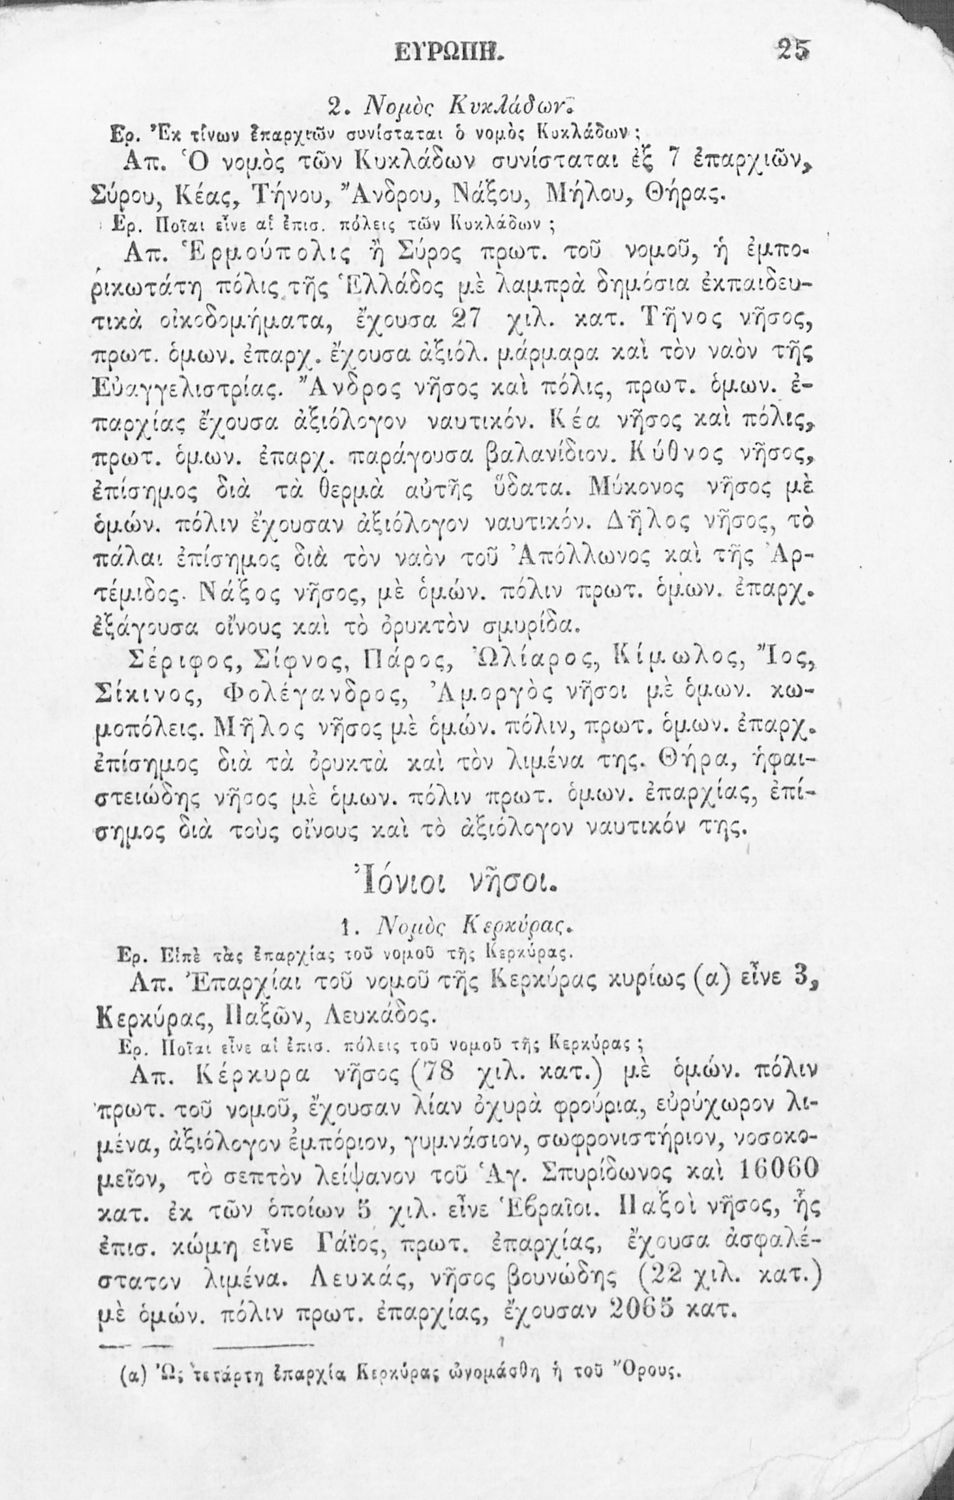 ΕΥΡΩΠΗ. 25
2. Νομὸς Κυκλάδων.
Ερ. Ἐκ τίνων ἐπαρχιῶν συνίσταται ὁ νομὸς Κυκλάδων;
Απ. Ὁ νομὸς τῶν Κυκλάδων συνίσταται ἐξ 7 ἐπαρχιῶν,
Σύρου, Κέας, Τήνου, Ἄνδρου, Νάξου, Μήλου, Θήρας.
Ερ. Ποῖαι εἶνε αἱ ἐπισ. πόλεις τῶν Κυκλάδων;
Απ. Ἑρμούπολις ἢ Σύρος πρωτ. τοῦ νομοῦ, ἡ ἐμπο-
ρικωτάτη πόλις τῆς Ἑλλάδος μὲ λαμπρὰ δημόσια ἐκπαιδευ-
τικὰ οἰκοδομήματα, ἔχουσα 27 χιλ. κατ. Τῆνος νῆσος,
πρωτ. ὁμων. ἐπαρχ. ἔχουσα ἀξιόλ. μάρμαρα καὶ τὸν ναὸν τῆς
Εὐαγγελιστρίας. Ἄνδρος νῆσος καὶ πόλις, πρωτ. ὁμων. ἐ-
παρχίας ἔχουσα ἀξιόλογον ναυτικόν. Κέα νῆσος καὶ πόλις,
πρωτ. ὁμων. ἐπαρχ. παράγουσα βαλανίδιον. Κύθνος νῆσος,
ἐπίσημος διὰ τὰ θερμὰ αὐτῆς ὕδατα. Μύκονος νῆσος μὲ
ὁμών. πόλιν ἔχουσαν ἀξιόλογον ναυτικόν. Δῆλος νῆσος, τὸ
πάλαι ἐπίσημος διὰ τὸν ναὸν τοῦ Ἀπόλλωνος καὶ τῆς Ἀρ-
τέμιδος. Νάξος νῆσος, μὲ ὁμών. πόλιν πρωτ. ὁμων. ἐπαρχ.
ἐξάγουσα οἴνους καὶ τὸ ὀρυκτὸν σμυρίδα.
Σέριφος, Σίφνος, Πάρος, Ὠλίαρος, Κίμωλος, Ἴος,
Σίκινος, Φολέγανδρος, Ἀμοργὸς νῆσοι μὲ ὁμων. κω-
μοπόλεις. Μῆλος νῆσος μὲ ὁμών. πόλιν, πρωτ. ὁμων. ἐπαρχ.
ἐπίσημος διὰ τὰ ὀρυκτὰ καὶ τὸν λιμένα της. Θήρα, ἡφαι-
στειώδης νῆσος μὲ ὁμων. πόλιν πρωτ. ὁμων. ἐπαρχίας, ἐπί-
σημος διὰ τοὺς οἴνους καὶ τὸ ἀξιόλογον ναυτικόν της.
Ἰόνιοι νῆσοι.
1. Νομὸς Κερκύρας.
Ερ. Εἰπὲ τὰς ἐπαρχίας τοῦ νομοῦ τῆς Κερκύρας.
Απ. Ἐπαρχίαι τοῦ νομοῦ τῆς Κερκύρας κυρίως (α) εἶνε 3,
Κερκύρας, Παξῶν, Λευκάδος.
Ερ. Ποῖαι εἶνε αἱ ἐπισ. πόλεις τοῦ νομοῦ τῆς Κερκύρας;
Απ. Κέρκυρα νῆσος (78 χιλ. κατ.) μὲ ὁμών. πόλιν
πρωτ. τοῦ νομοῦ, ἔχουσαν λίαν ὀχυρὰ φρούρια, εὐρύχωρον λι-
μένα, ἀξιόλογον ἐμπόριον, γυμνάσιον, σωφρονιστήριον, νοσοκο-
μεῖον, τὸ σεπτὸν λείψανον τοῦ Ἁγ. Σπυρίδωνος καὶ 16060
κατ. ἐκ τῶν ὁποίων 5 χιλ. εἶνε Ἑβραῖοι. Παξοὶ νῆσος, ἧς
ἐπισ. κώμη εἶνε Γάϊος, πρωτ. ἐπαρχίας, ἔχουσα ἀσφαλέ-
στατον λιμένα. Λευκάς, νῆσος βουνώδης (22 χιλ. κατ.)
μὲ ὁμών. πόλιν πρωτ. ἐπαρχίας, ἔχουσαν 2065 κατ.
(α) Ὡς τετάρτη ἐπαρχία Κερκύρας ὠνομάσθη ἡ τοῦ Ὄρους.